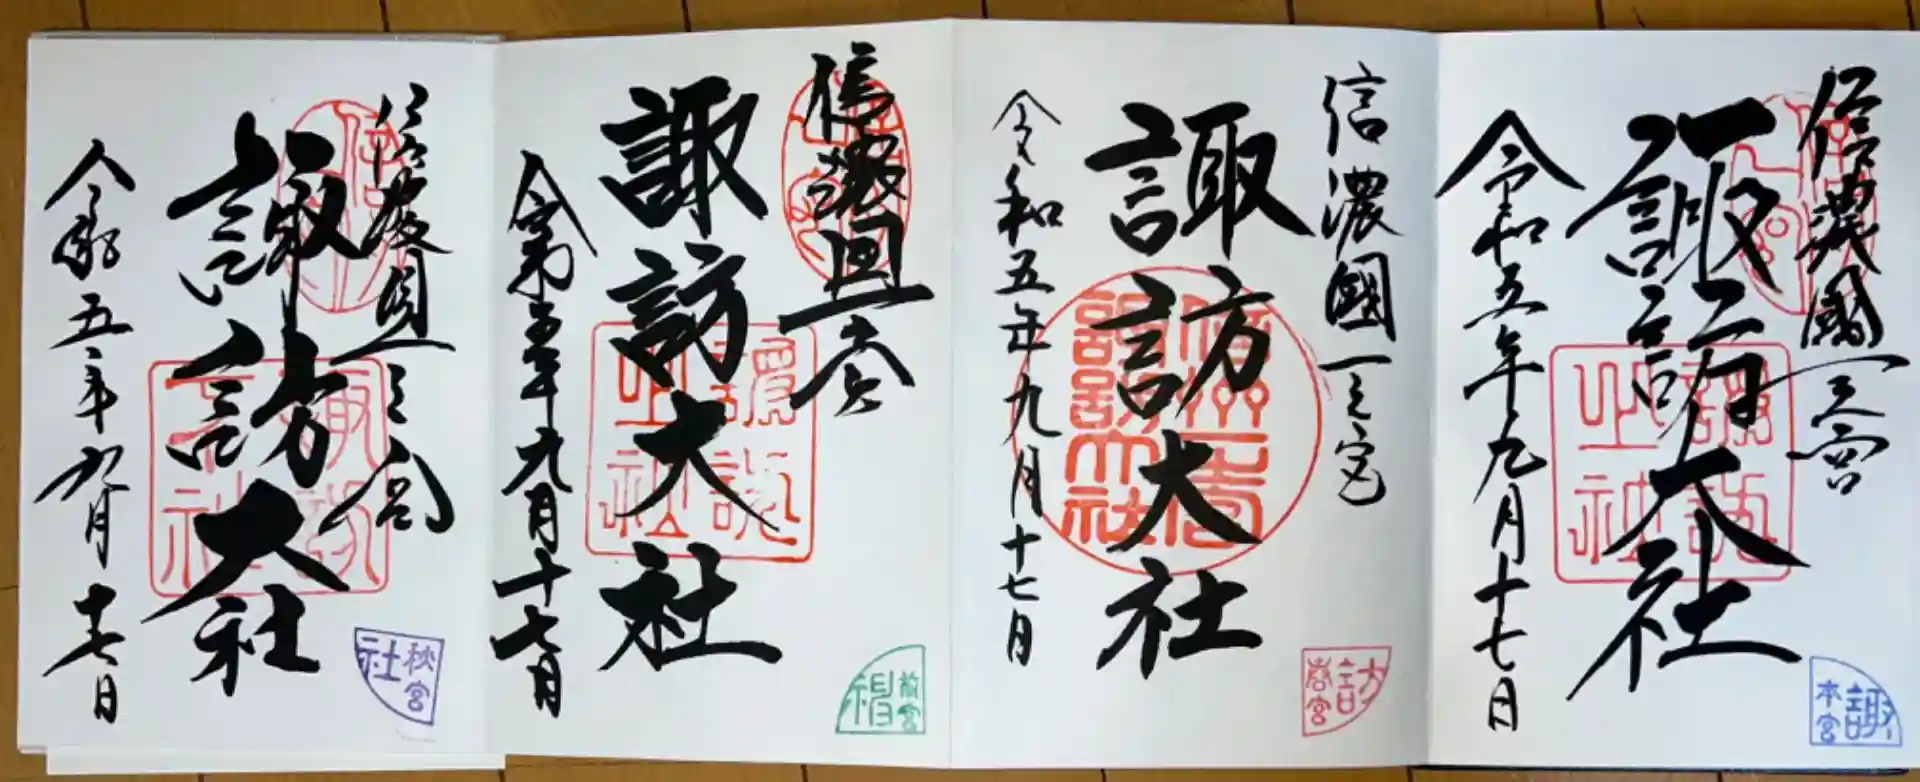 信濃國一之宮
諏訪大社
令和五年九月十七日
諏
本宮
信濃國一之宮
諏訪大社
令和五年九月十七日
訪
春宮
信濃國一之宮
諏訪大社
令和五年九月十七日
前宮
信濃國一之宮
諏訪大社
令和五年九月十七日
秋宮
社